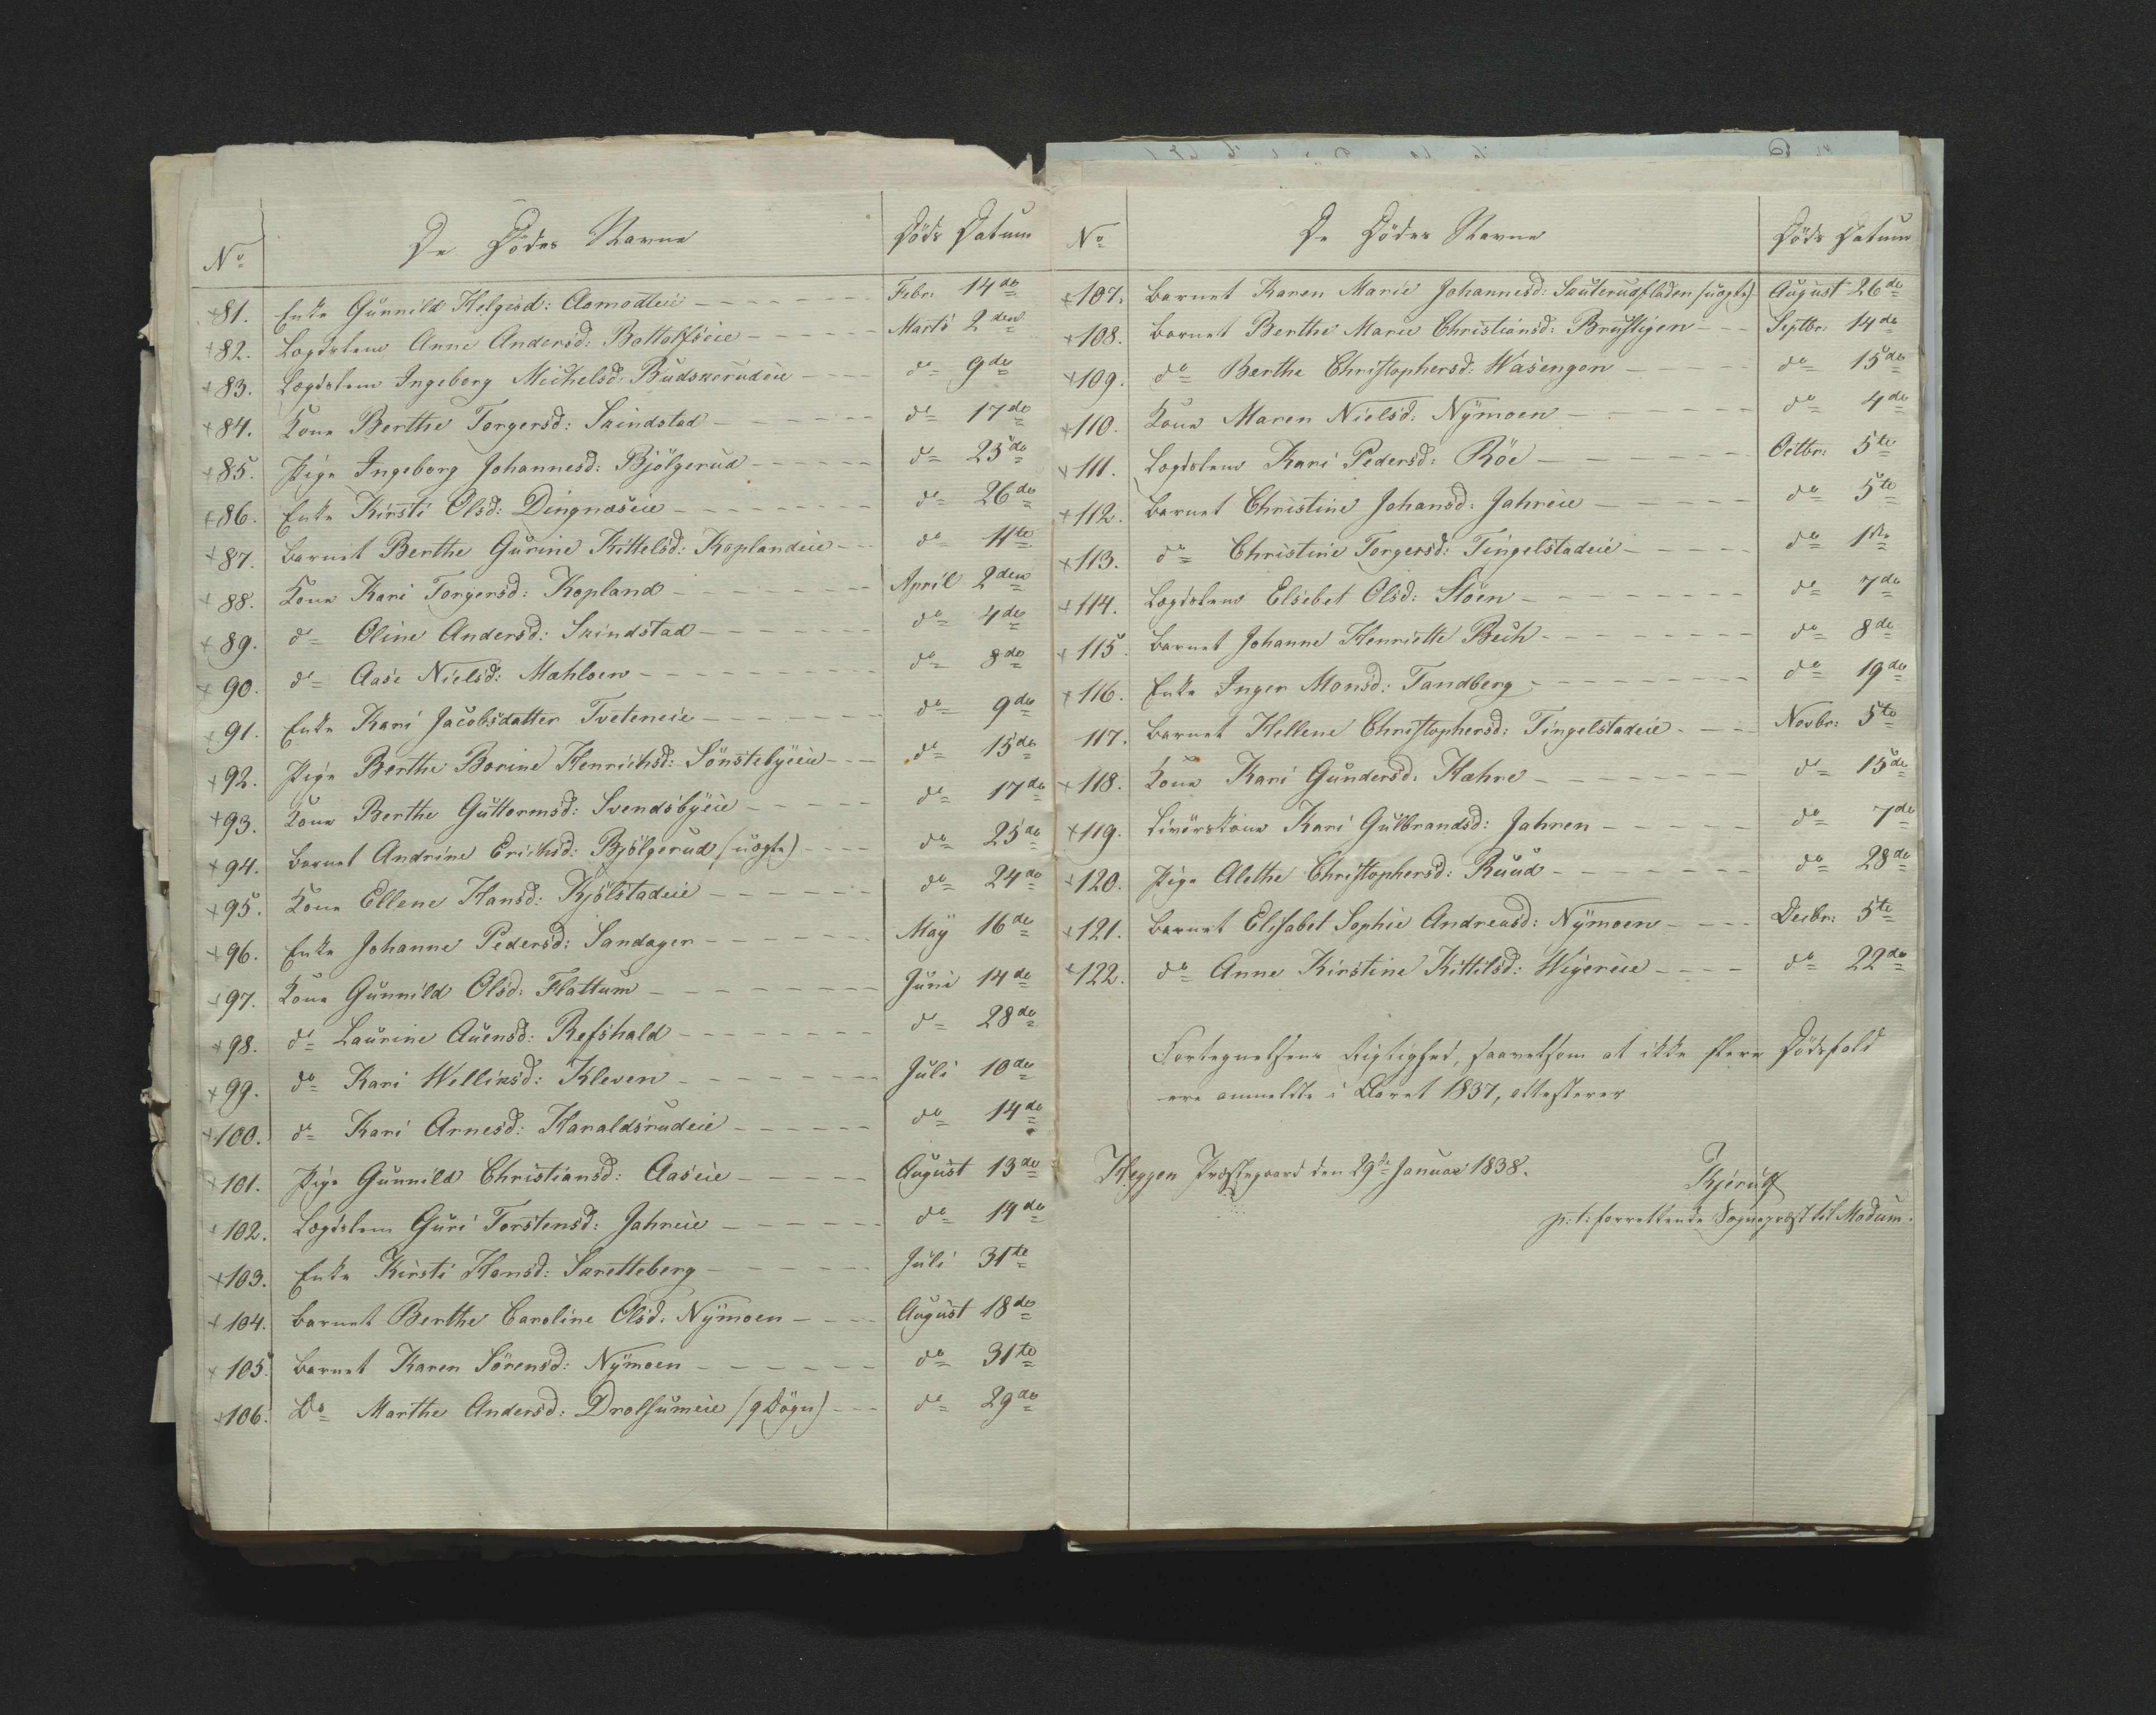 No De Dödes Navne Döds Datum
81. Enke Gunnild Helgesd: Aamodteie Febr: 14de
82. Lægdslem Anne Andersd: Bottolfseie Marts 2den
83. Lægdslem Ingeborg Michelsd: Budskerudeie do 9de
84. Kone Berthe Torgersd: Skindstad do 17de
85. Pige Ingeborg Johannesd: Bjölgerud do 23de
86. Enke Kirsti Olsd: Dingnæseie do 26de
87. Barnet Berthe Gurine Kittelsd: Koplandeie do 11te
88. Kone Kari Torgersd: Kopland April 2den
89. do Oline Andersd: Skindstad do 4de
90. do Aase Nielsd: Mæhloen do 8de
91. Enke Kari Jacobsdatter Tveteneie do 9de
92. Pige Berthe Borine Henrichsd: Sönstebyeie do 15de
93. Kone Berthe Guttormsd: Svendsbyeie do 17de
94. Barnet Andrine Erichsd: Bjölgerud (uægte) do 25de
95. Kone Ellene Hansd: Kjölstadeie do 24de
96. Enke Johanne Pedersd: Sandager May 16de
97. Kone Gunnild Olsd: Flattum Juni 14de
98. do Laurine Auensd: Refshald do 28de
99. do Kari Wellixsd: Kleven Juli 10de
100. do Kari Arnesd: Haraldsrudeie do 14de
101. Pige Gunnild Christiansd: Aaseie August 13de
102. Lægdslem Guri Torstensd: Jahreie do 14de
103. Enke Kirsti Hansd: Skretteberg Juli 31te
104. Barnet Berthe Caroline Olsd: Nymoen August 18de
105. Barnet Karen Sörensd: Nymoen do 31te
106. Do Marthe Andersd: Drolsumeie (9 Dögn) do 29de
No De Dödes Navne Döds Datum
107. Barnet Karen Marie Johannesd: Skuterudfladen (uægte) August 26de
108. Barnet Berthe Marie Christiansd: Brustigen Septbr: 14de
109. do Berthe Christophersd: Wasengen do 15de
110. Kone Maren Nielsd: Nymoen do 4de
111. Lægdslem Kari Pedersd: Röe Octbr: 5te
112. Barnet Christine Johansd: Jahreie do 5te
113. do Christine Torgersd: Tingelstadeie do 1ste
114. Lægdslem Elsebet Olsd: Stöen do 7de
115. Barnet Johanne Henriette Bech do 8de
116. Enke Inger Monsd: Tandberg do 19de
117. Barnet Hellene Christophersd: Tingelstadeie Novbr: 5te
118. Kone Kari Gundersd: Hæhre do 15de
119. Livörskone Kari Gulbrandsd: Jahren do 7de
120. Pige Alethe Christophersd: Ruud do 28de
121. Barnet Elisabet Sophie Andreasd: Nymoen Decbr: 5te
122. do Anne Kirstine Kittilsd: Wigereie do 22de
Fortegnelsens Rigtighed, saavelsom at ikke flere Dödsfald
ere anmeldte i Aaret 1837, attesterer
Heggen Præstegaard den 29de Januar 1838.
Kjerulf
p: t: forrettende Sognepræst til Modum.